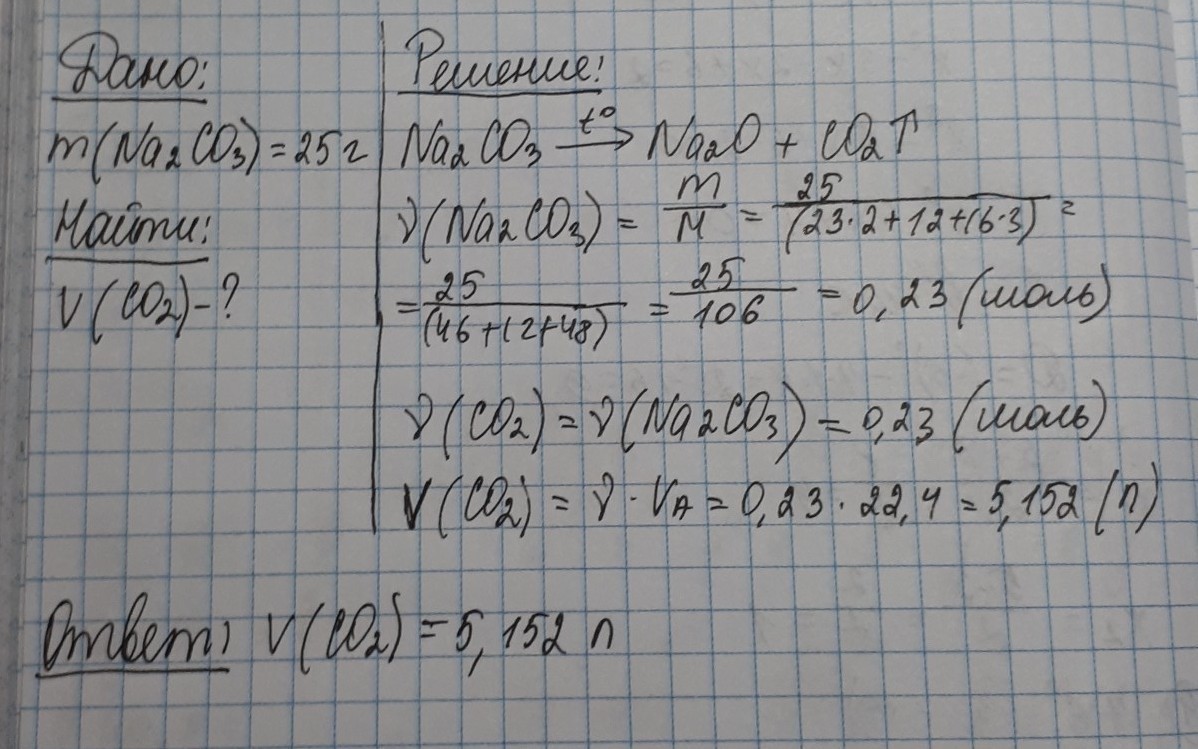 Дано:
m(Na₂CO₃) = 25 г
Найти:
V(CO₂) - ?
Решение:
Na₂CO₃ —t°→ Na₂O + CO₂↑
ν(Na₂CO₃) = m/M = 25/(23·2+12+16·3) =
= 25/(46+12+48) = 25/106 = 0,23 (моль)
ν(CO₂) = ν(Na₂CO₃) = 0,23 (моль)
V(CO₂) = ν · VA = 0,23 · 22,4 = 5,152 (л)
Ответ: V(CO₂) = 5,152 л